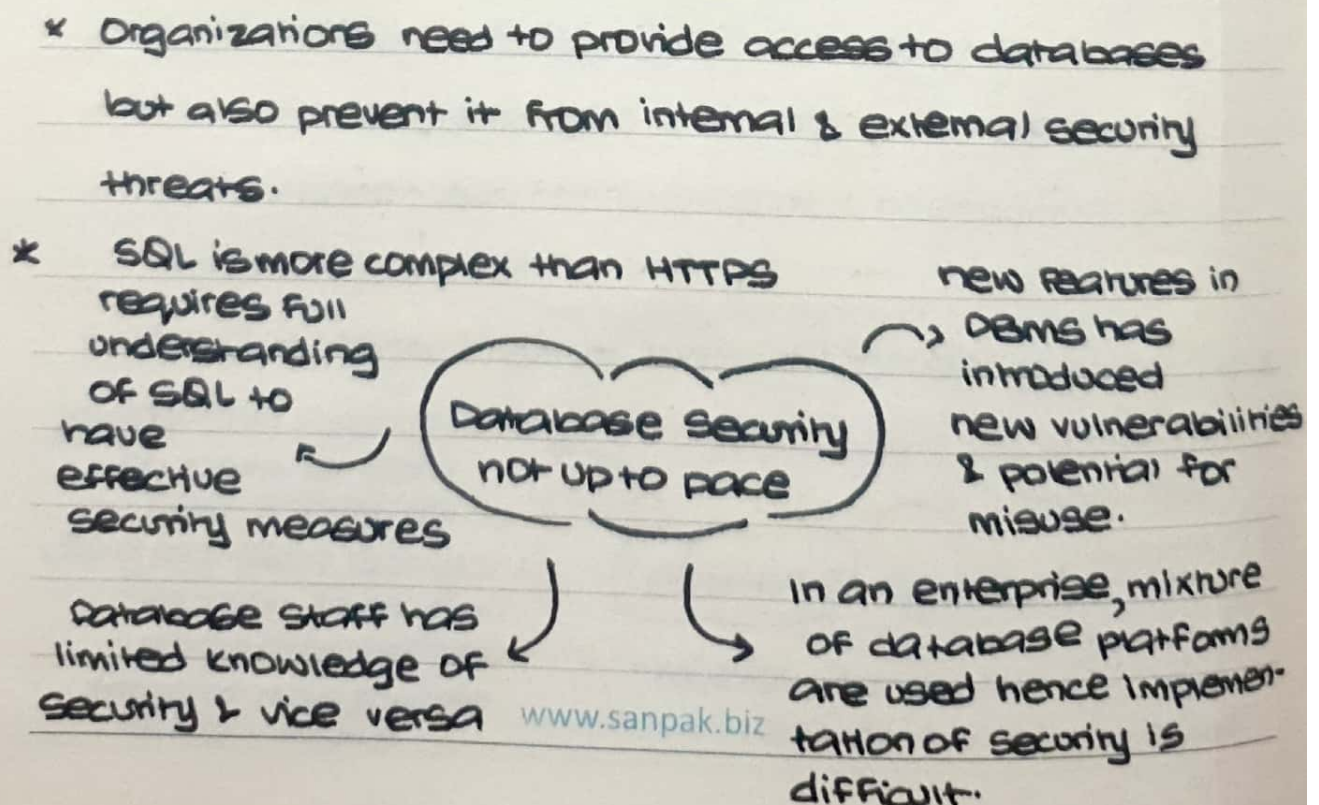 * Organizations need to provide access to databases
but also prevent it from internal & external security
threats.
* SQL is more complex than HTTPS
requires full
understanding
of SQL to
have
effective
security measures
Database security
not up to pace
new features in
DBMS has
introduced
new vulnerabilities
& potential for
misuse.
Database staff has
limited knowledge of
security & vice versa
In an enterprise, mixture
of database platforms
are used hence implemen-
tation of security is
difficult.
www.sanpak.biz